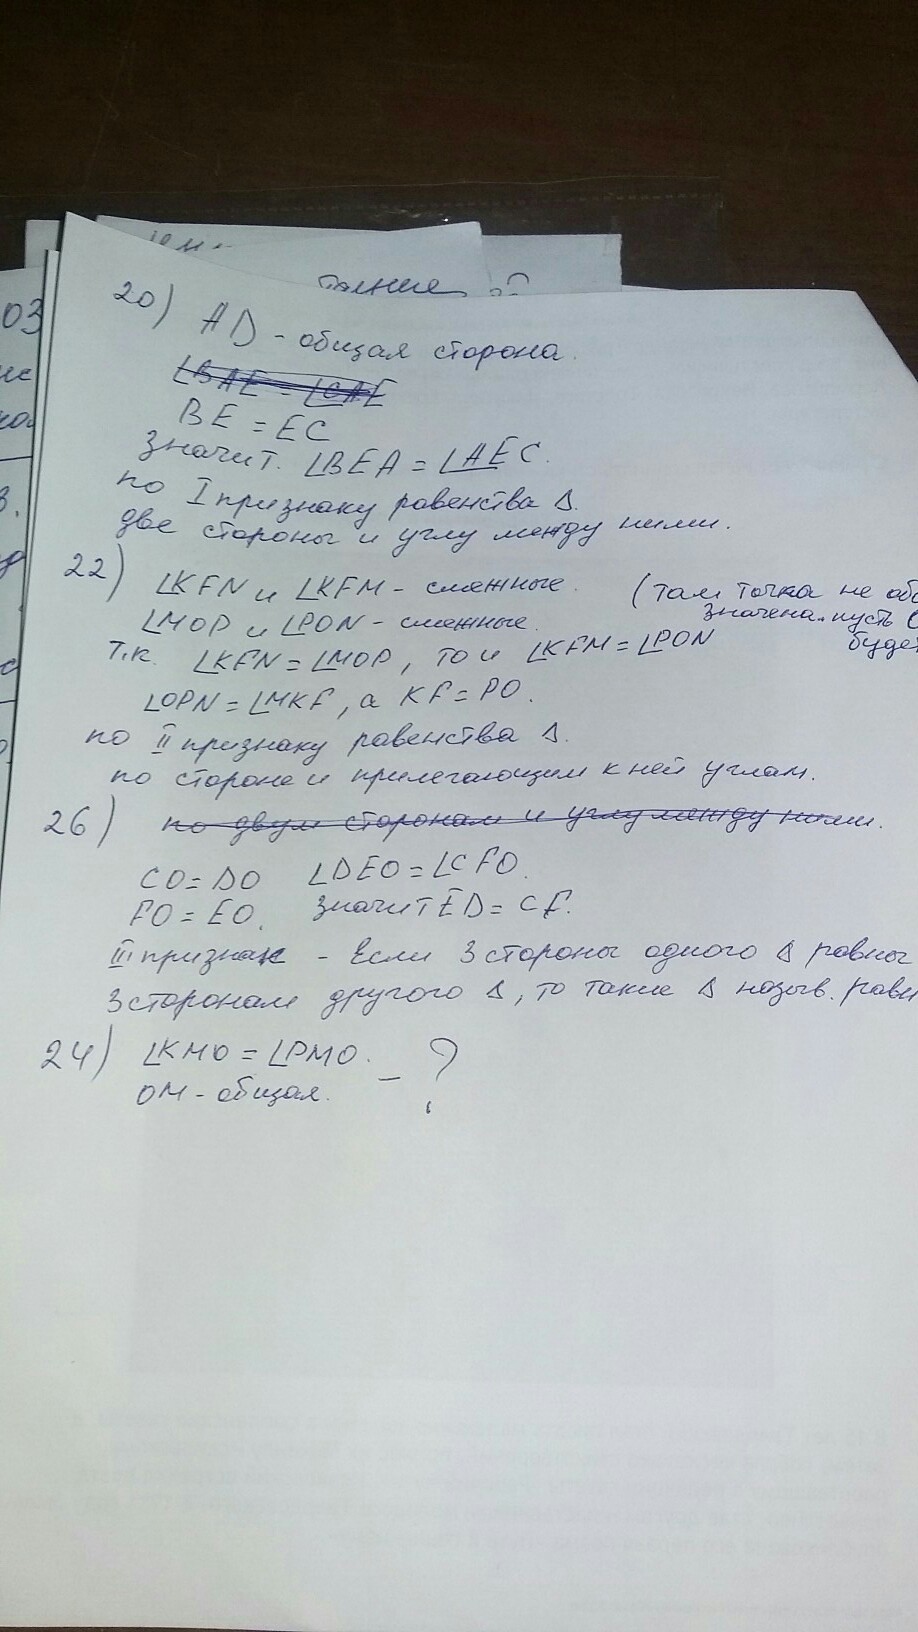 тание
03
20) AD - общая сторона.
∠BAE = ∠CAE
BE = EC
значит. ∠BEA = ∠AEC.
по I признаку равенства Δ.
две стороны и углу между ними.
22) ∠KFN и ∠KFM - смежные. (там точка не обо
∠MOP и ∠PON - смежные. значена. пусть
т.к. ∠KFN = ∠MOP, то и ∠KFM = ∠PON будет
∠OPN = ∠MKF, а KF = PO.
по II признаку равенства Δ.
по стороне и прилегающим к ней углам.
26) по двум сторонам и углу между ними.
CO = DO ∠DEO = ∠CFO.
FO = EO. значит ED = CF.
III признак - Если 3 стороны одного Δ равны
3 сторонам другого Δ, то такие Δ назыв. равн
24) ∠KMO = ∠PMO. - ?
OM - общая.